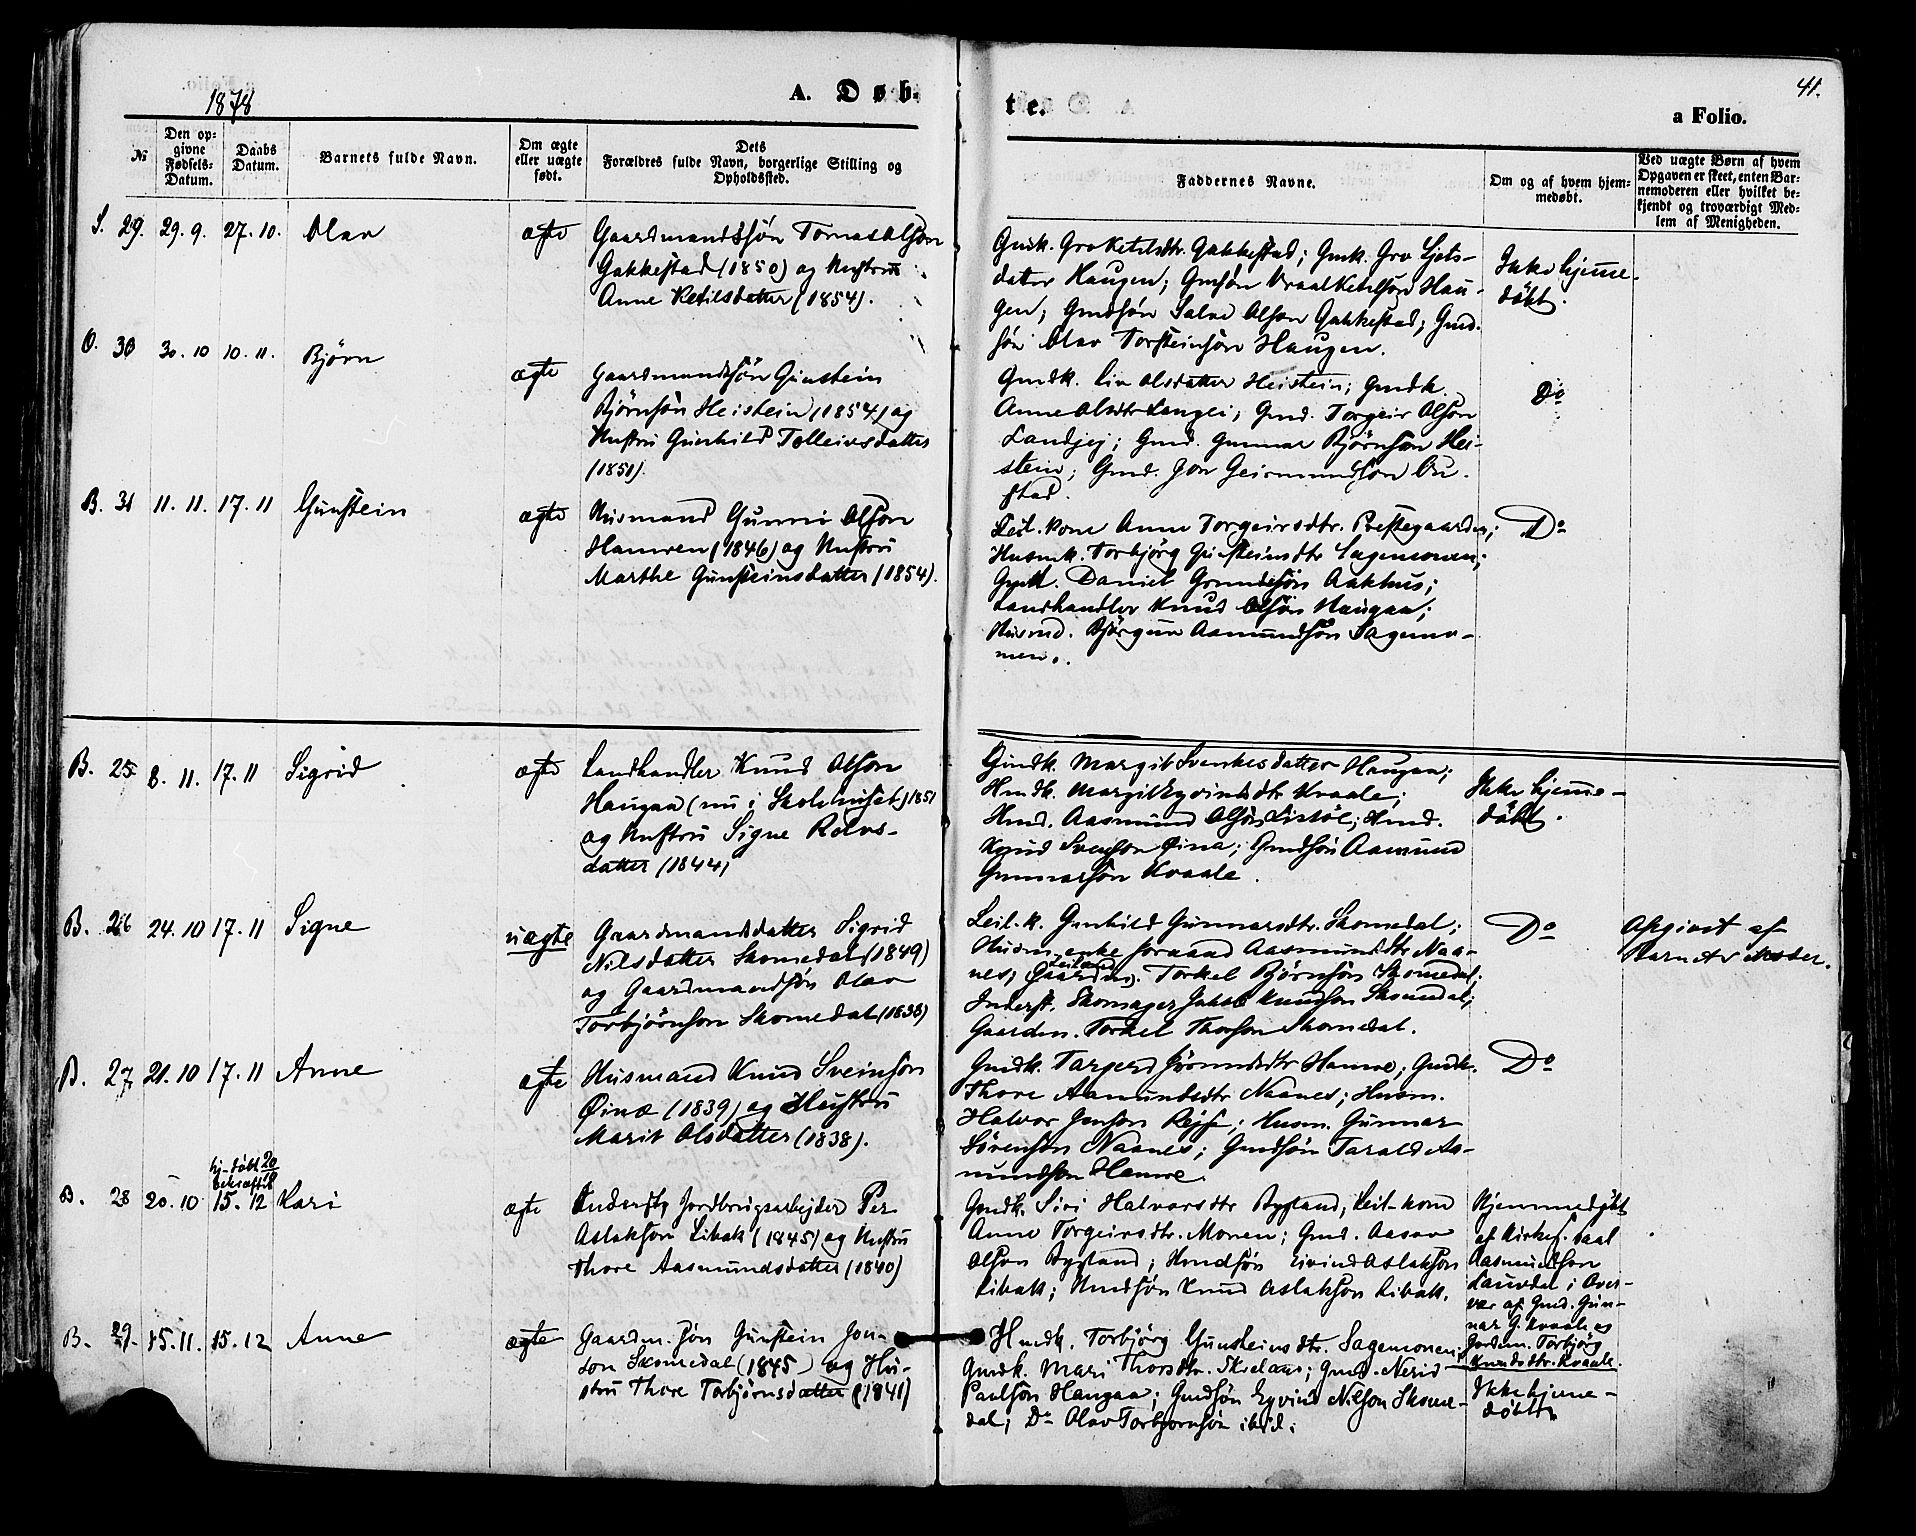 1878
A. Døb-
te.
41.
a Folio.
№
Den op-
givne
Fødsels-
Datum.
Daabs
Datum.
Barnets fulde Navn.
Om ægte
eller uægte
født.
Dets
Forældres fulde Navn, borgerlige Stilling og
Opholdssted.
Faddernes Navne.
Om og af hvem hjem-
medøbt.
Ved uægte Børn af hvem
Opgaven er skeet, enten Bar-
nemoderen eller hvilket be-
kjendt og troværdigt Med-
lem af Menigheden.
S. 29. 29. 9. 27. 10. Olav ægte
Gaardmandssøn Tomas Olson
Gakkestad (1850) og Hustru
Anne Ketilsdatter (1854).
Gmdk. Gro Ketilsdtr. Gakkestad; Gmk. Gro Ljots-
datter Haugen; Gmsøn Vraal Ketilson Hau-
gen; Gmdsøn Salve Olson Gakkestad; Gmd.
søn Olav Torsteinsøn Haugen.
Ikke hjemme-
døbt.
O. 30 30. 10 10. 11. Bjørn ægte
Gaardmandssøn Gunstein
Bjørnsøn Heistein (1854) og
Hustru Gunhild Tolleivsdatter
(1851).
Gmdk. Liv Olsdatter Heistein; Gmdk.
Anne Olsdtr Langei; Gmd. Torgeir Olson
Landjej; Gmd. Gunnar Bjørnson Hei-
stein; Gmd. Jon Geirmundson
stad.
Do
B. 31 11. 11. 17. 11 Gunstein ægte
Husmand Gunni Olson
Hamren (1846) og Hustru
Marthe Gunsteinsdatter (1854).
Leil. kone Anne Torgeirsdtr. Prestegaarden;
Husmk. Torbjørg Gunsteinsdtr Sagemonen;
Daniel Aakhus;
Landhandler Knud Olson Haugaa;
Husmd. Bjørgun Aamundson Sagemo-
nen.
Do
B. 25 8. 11. 17. 11 Sigrid ægte
Landhandler Knud Olson
Haugaa (nu i Skolehuset) 1851
og Hustru Signe Rolvs-
datter (1844)
Gmdk. Margit Svenkesdatter Haugaa;
Hmdk. Margit Eyvindsdtr Kvaale;
Hmd. Aasmund Olson Listøl; Hmd.
Knud Svenson Øina; Gmdsøn Aamund
Gunnarson Kvaale.
Ikke hjemme-
døbt.
B. 26 24. 10 17. 11 Signe uægte
Gaardmandsdatter Sigrid
Nilsdatter Skomedal (1849)
og Gaardmandssøn Olav
Torbjørnson Skomedal (1838)
Leil. k. Gunhild Gunnarsdtr. Skomedal;
Husm.enke Aasmundsdtr Naa-
nes; Torkel Bjørnson Skomedal;
Inderst. Skomager Jakob Knudson Skomedal;
Gaardm. Torkel Thorson Skomedal.
Do
Opgivet af
Barnets Moder.
B. 27 21. 10 17. 11 Anne ægte
Husmand Knud Sveinson
Øinæ (1839) og Hustru
Marit Olsdatter (1838).
Gmdk. Targerd Hamre; Gmdk.
Thore Aamundsdtr Naanes; Husm.
Halvor Jonson Rejse; Husm. Gunnar
Sørenson Naanes; Gmdsøn Tarald Aa-
mundson Hamre.
Do
hj-døbt 20/10
bekræftet
B. 28 20. 10 15. 12 Kari ægte
Inderst og Jordbrugsarbejder Per
Aslakson Libak (1845) og Hustru
Thore Aasmundsdatter (1840)
Gmdk. Siri Halvorsdtr Bygland; Leil-kone
Anne Torgeirsdtr. Monen; Gmd. Aasav
Olson Bygland; Hmdsøn Eivind Aslakson
Libakk; Hmdsøn Knud Aslakson Libakk.
Hjemmedøbt
af Kirkes.
Aasmundson
Lauvdal i Over-
vær af Gmd. Gun-
nar G. Kvaale og
Jordem. Torbjørg
Knudsdtr. Kvaale.
B. 29. 15. 11. 15. 12 Anne ægte
Gaardm. søn Gunstein Jon-
son Skomedal (1845) og Hu-
stru Thore Torbjørnsdatter (1841)
Hmdk. Torbjørg Gunsteinsdtr. Sagemonen;
Gmdk. Mari Thorsdtr. Gmd. Nerid
Paulson Haugaa; Gmdsøn Eyvind Nilson Skome-
dal; Do Olav Torbjørnson ibid.
Ikke hjemme-
døbt